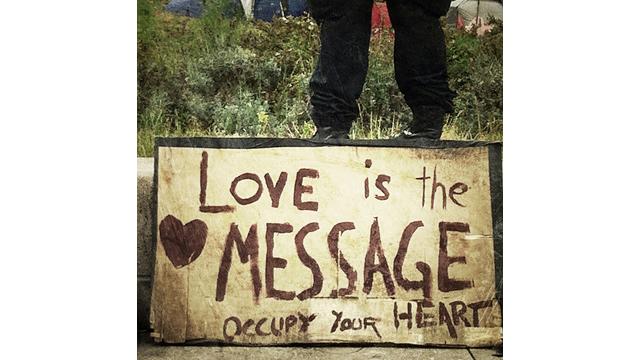 LOVE is the
MESSAGE
OCCUPY YOUR HEART